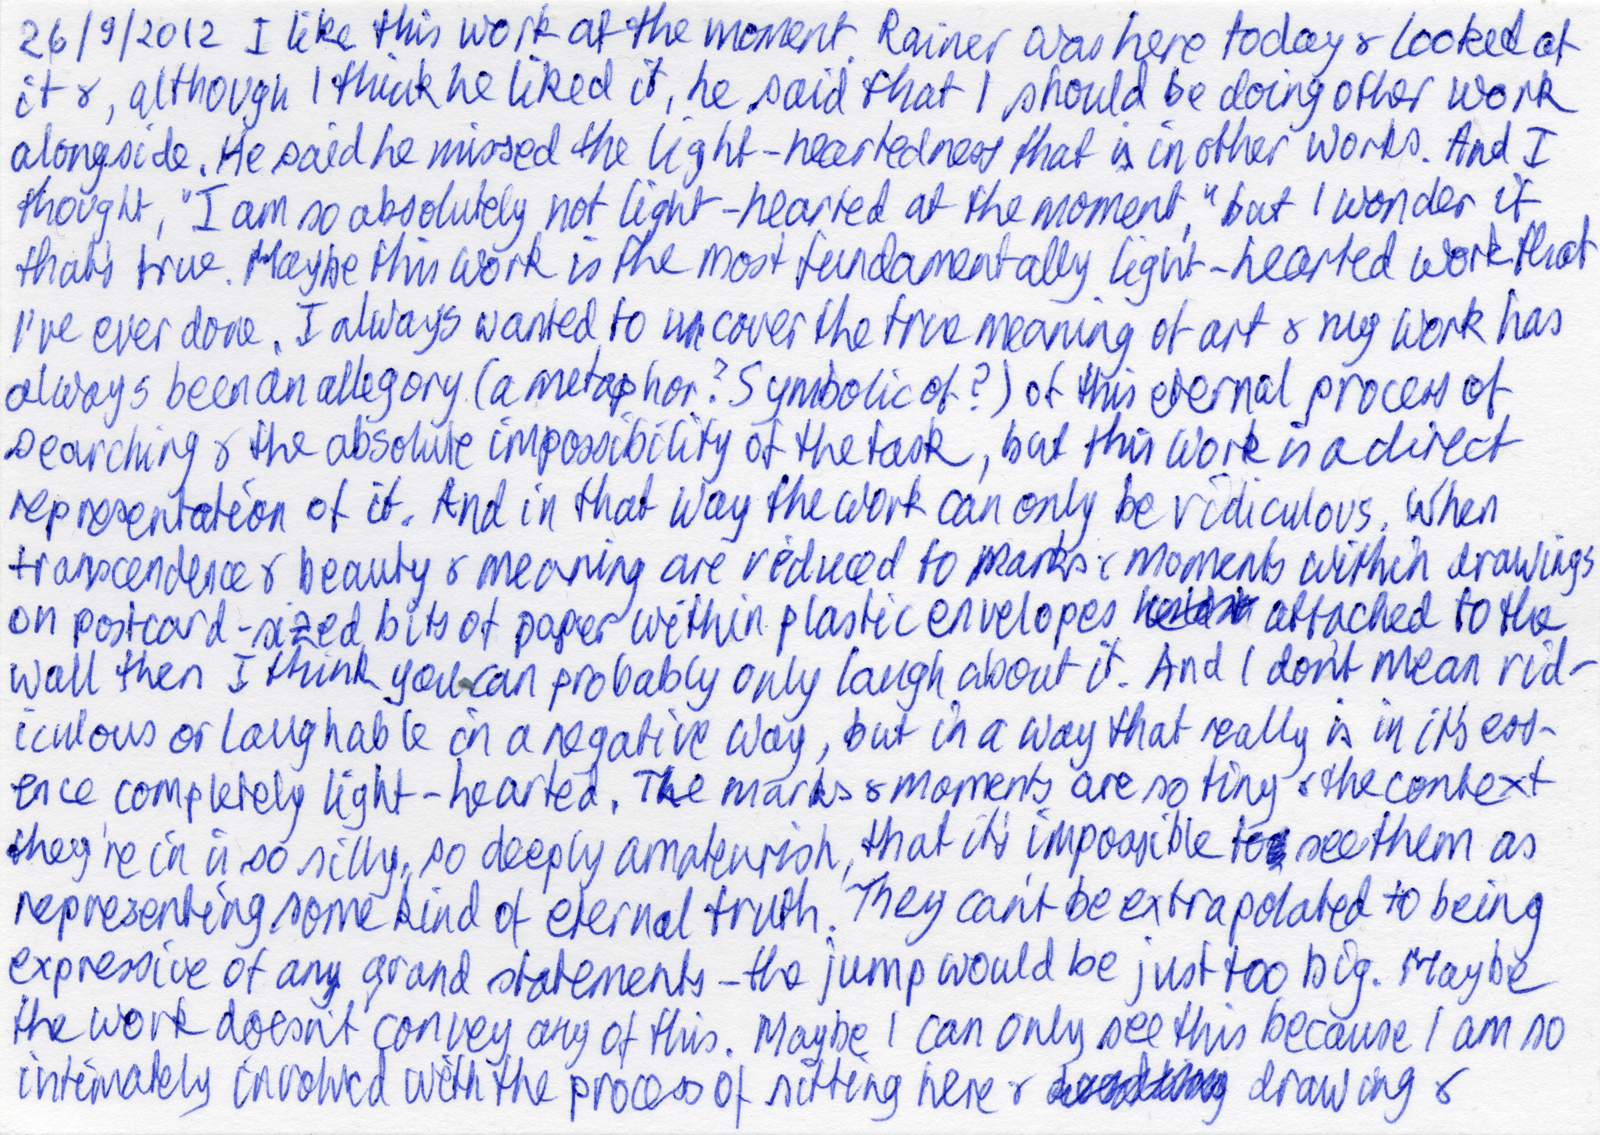 26/9/2012 I like this work at the moment. Rainer was here today & looked at
it &, although I think he liked it, he said that I should be doing other work
alongside. He said he missed the light-heartedness that is in other works. And I
thought, "I am so absolutely not light-hearted at the moment," but I wonder if
that's true. Maybe this work is the most fundamentally light-hearted work that
I've ever done. I always wanted to uncover the true meaning of art & my work has
always been an allegory (a metaphor? Symbolic of?) of this eternal process of
searching & the absolute impossibility of the task, but this work is a direct
representation of it. And in that way the work can only be ridiculous. When
transcendence & beauty & meaning are reduced to marks & moments within drawings
on postcard-sized bits of paper within plastic envelopes attached to the
wall then I think you can probably only laugh about it. And I don't mean rid-
iculous or laughable in a negative way, but in a way that really is in it's ess-
ence completely light-hearted. The marks & moments are so tiny & the context
they're in is so silly, so deeply amateurish, that it's impossible to see them as
representing some kind of eternal truth. They can't be extrapolated to being
expressive of any grand statements - the jump would be just too big. Maybe
the work doesn't convey any of this. Maybe I can only see this because I am so
intimately involved with the process of sitting here & drawing &